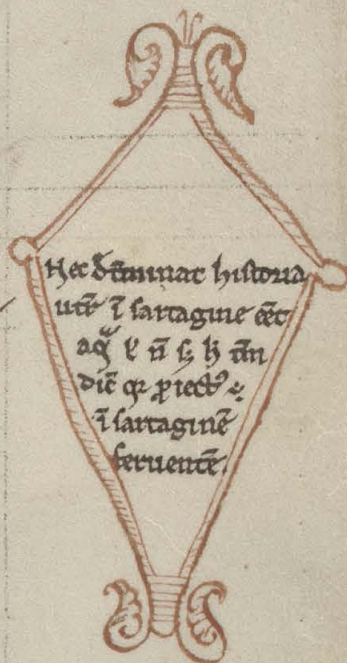 Hec dt̃minat historia
utr̃ ĩ sartagine eẽt
aq̃ ł ñ s; h̵ tm̃
dic̃ qꝛ ꝓiectꝰ ÷
ĩ sartaginẽ
feruentẽ.